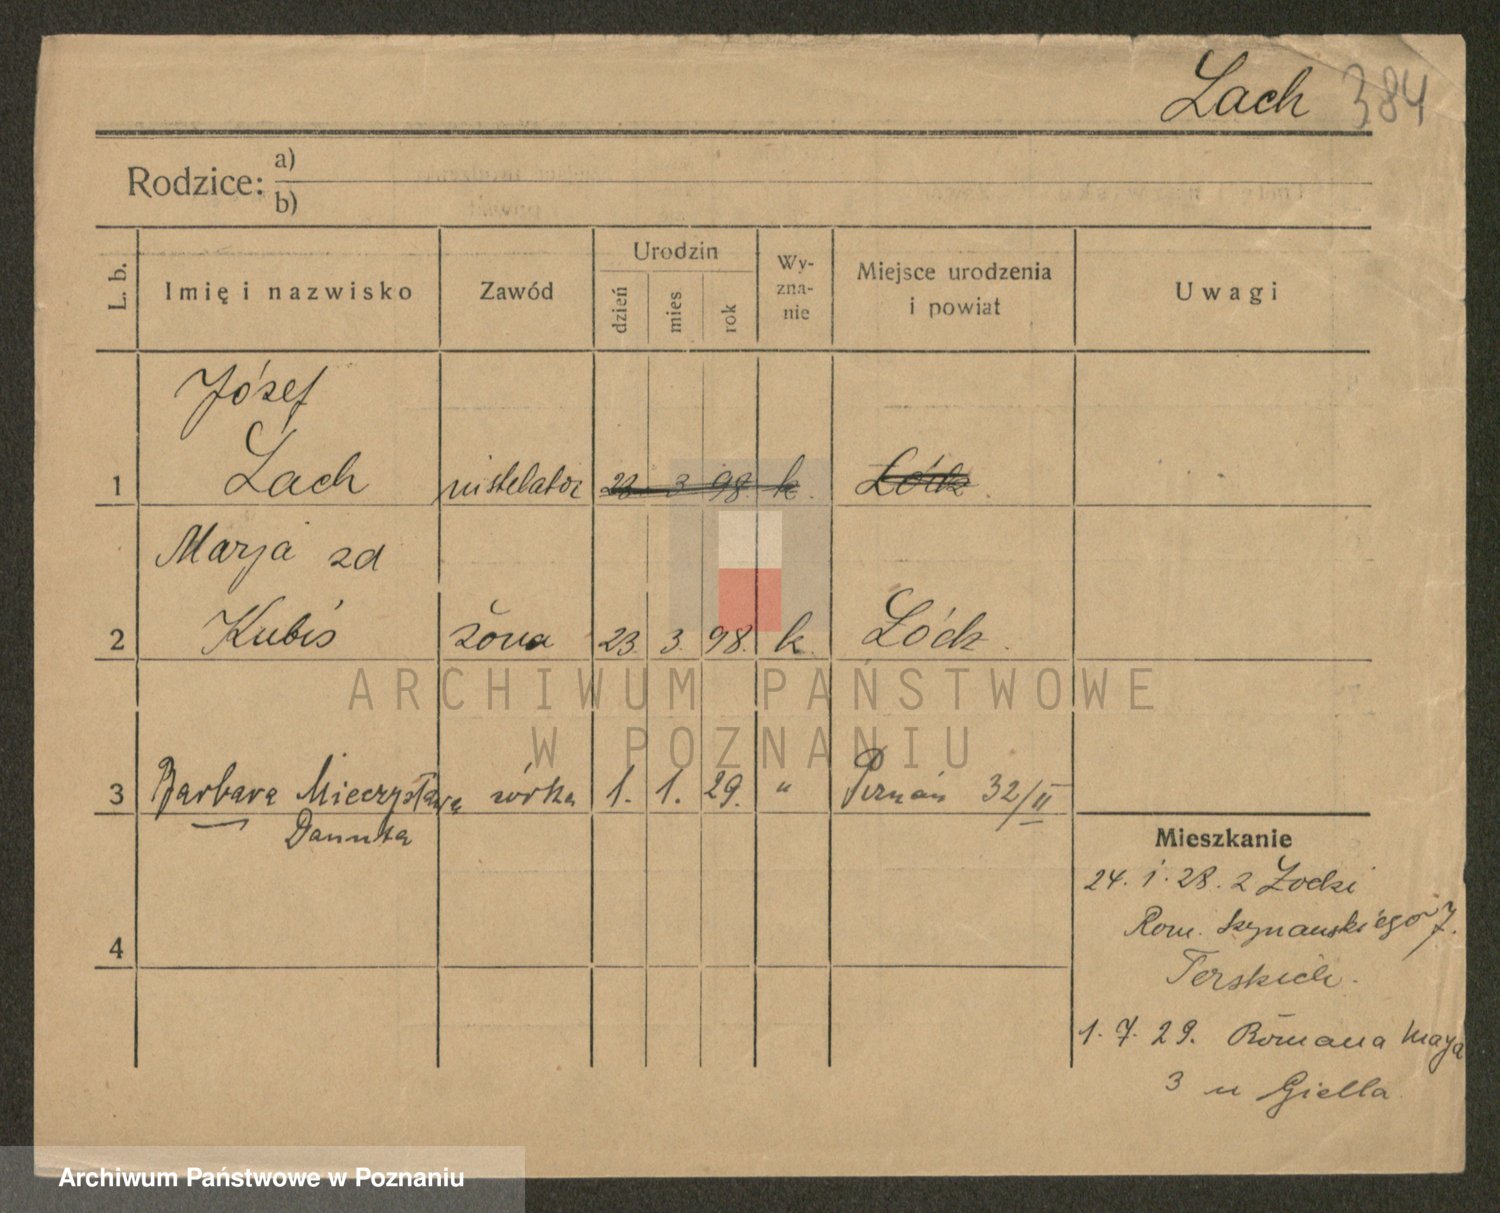 Lach 384
Rodzice: a)
b)
L. b. Imię i nazwisko Zawód Urodzin dzień mies rok Wy-zna-nie Miejsce urodzenia i powiat Uwagi
Józef
1 Lach 23 3 98. k. Łódz.
Marja zd
2 Kubiś żona 23. 3. 98. k. Łódz.
3 Barbara Mieczysława córka 1. 1. 29. " Poznań 32/II
Danuta
Mieszkanie
24. 1. 28. z Łodzi
Rom. Szymańskiego 7.
4
1. 7. 29. Romana Maya
3 u Giella
ARCHIWUM PAŃSTWOWE
W POZNANIU
Archiwum Państwowe w Poznaniu